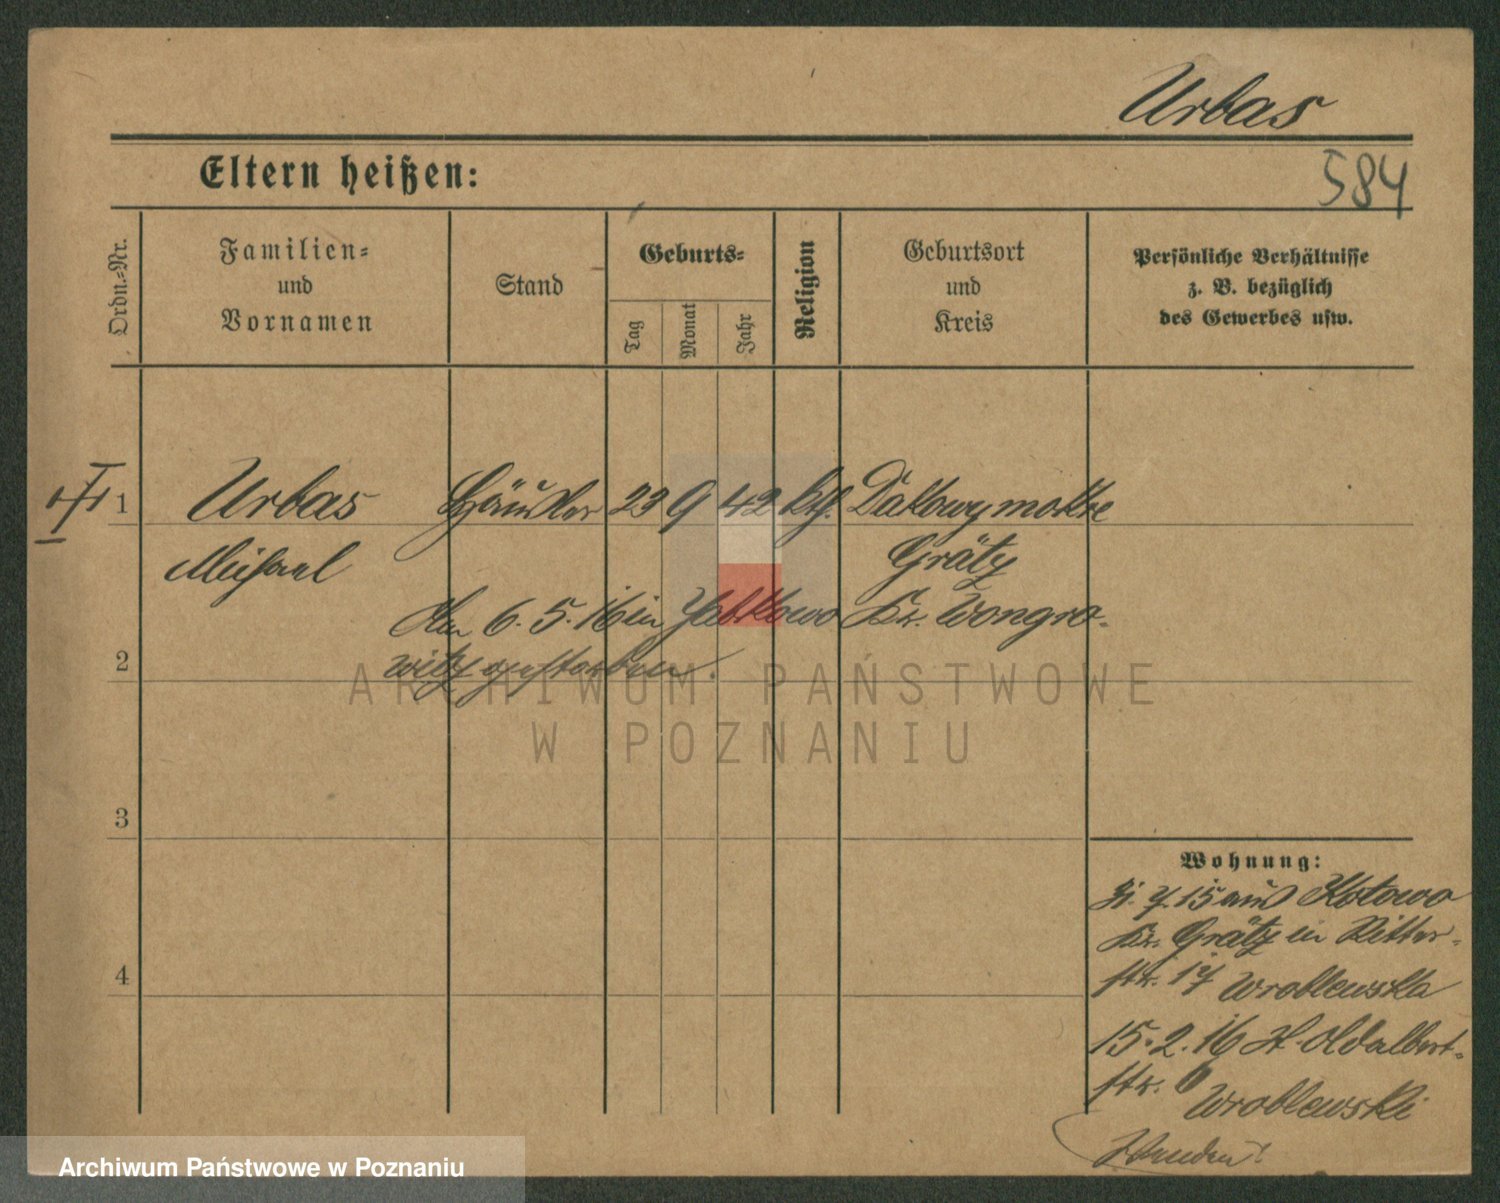 Urbas
Eltern heißen:
584
Ordn.-Nr.
Familien- und Vornamen
Stand
Geburts-
Tag
Monat
Jahr
Religion
Geburtsort und Kreis
Persönliche Verhältnisse
z. B. bezüglich
des Gewerbes usw.
1 Urbas Häusler 23 9 42 kth. Dakowy mokre
Michael Grätz
Am 6. 5. 16 in Jabkowo Kr. Wongro-
witz gestorben.
2
ARCHIWUM PAŃSTWOWE
W POZNANIU
3
Wohnung:
7. 15 aus Kotowo
Kr. Grätz in Ritter-
4
str. 17 Wroblewska
15. 2. 16 St. Adalbert-
str. 6
Wroblewski
Wenden!
Archiwum Państwowe w Poznaniu